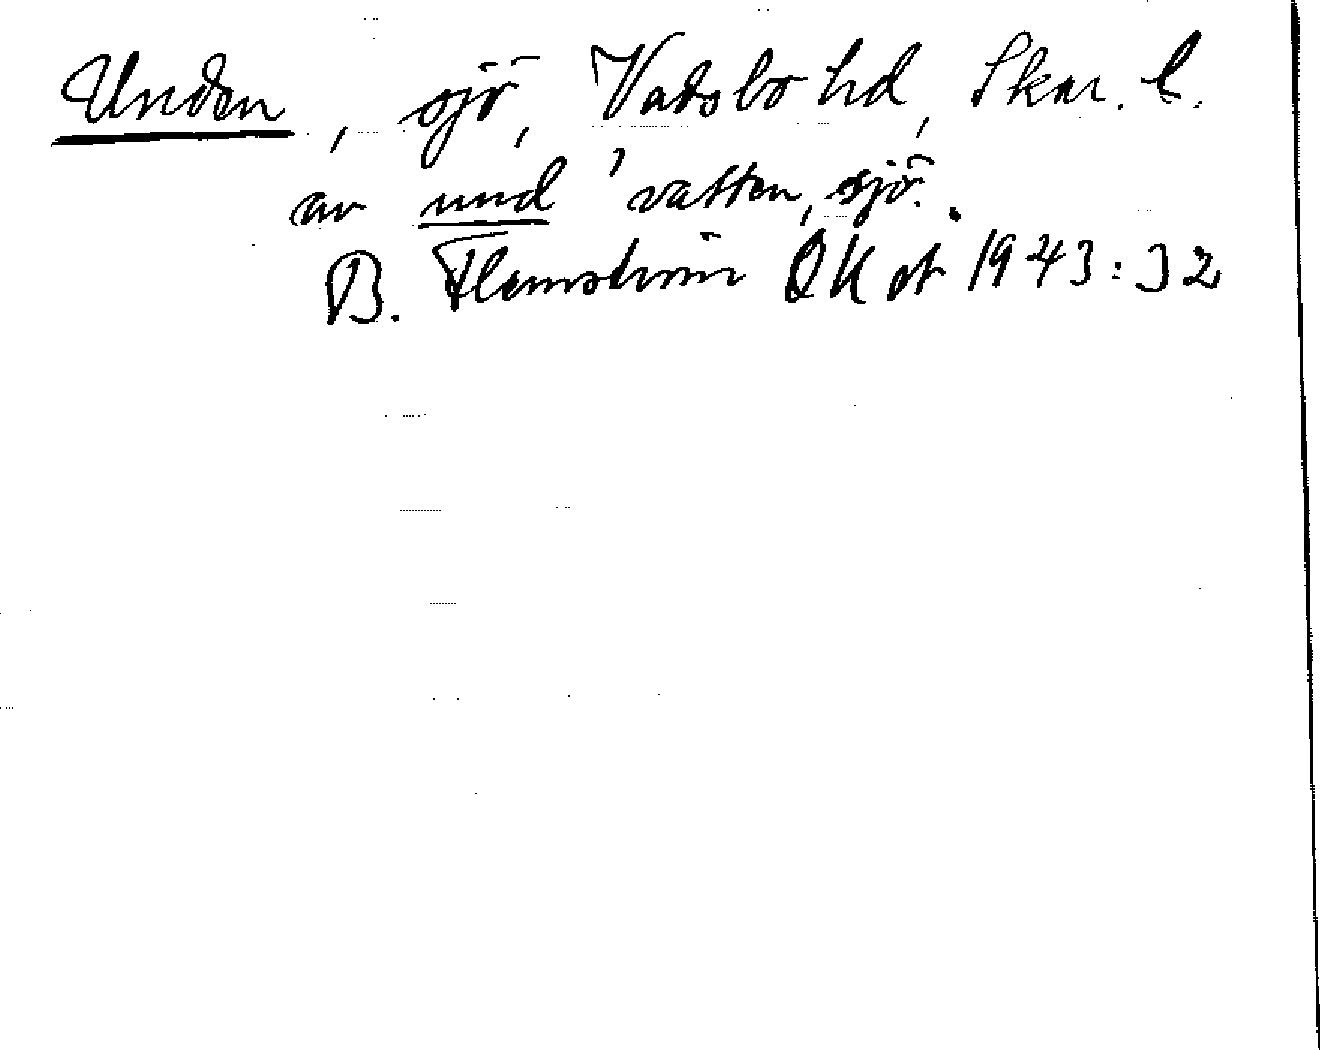 Unden, sjö, Vadsbo hd, Skar. l.
av und 'vatten, sjö'.
B. Flemström OK st 1943:32